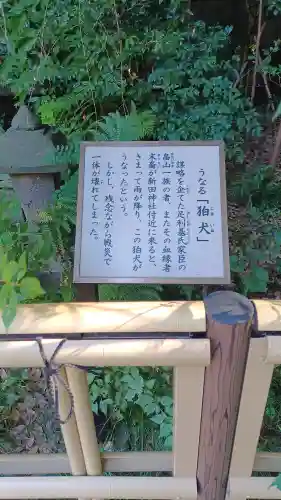 うなる「狛犬」
こま いぬ
謀略を企てた足利基氏家臣の
畠山一族の者、またその血縁者
末裔が新田神社付近に来ると、
きまって雨が降り、この狛犬が
うなったという。
しかし、残念ながら戦災で
一体が壊れてしまった。